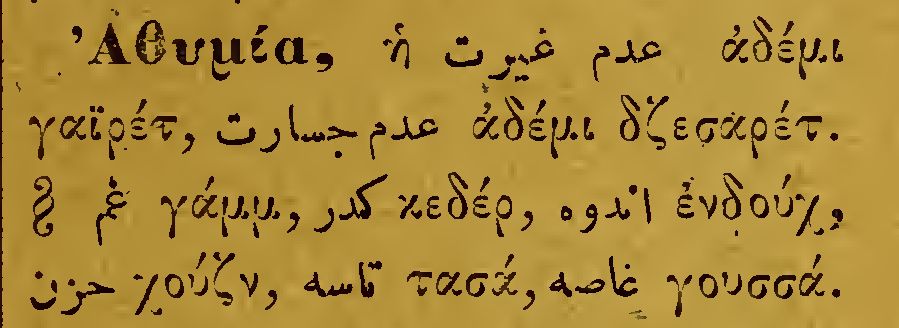 Ἀθυμία, ἡ عدم غيرت ἀδέμι
γαϊρέτ, عدم جسارت ἀδέμι δζεσαρέτ.
غم γάμμ, كدر κεδέρ, اندوه ἐνδούχ,
حزن χούζν, تاسه τασά, غاصه γουσσά.